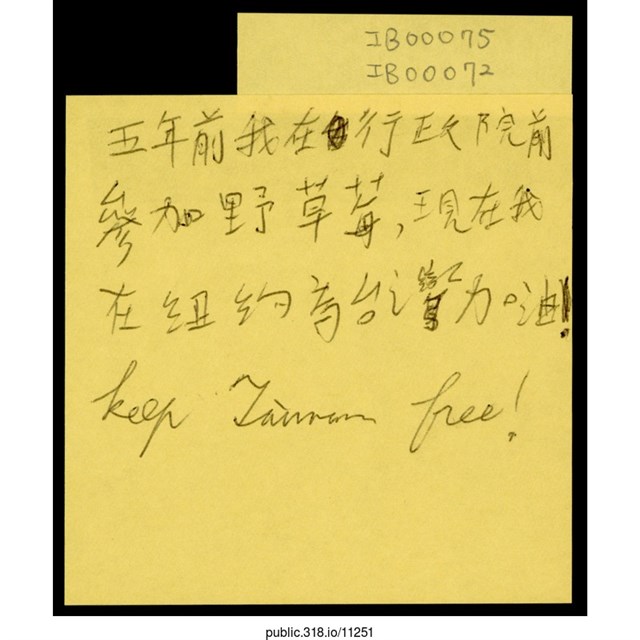 IB00075
IB00072
五年前我在行政院前
參加野草莓,現在我
在紐約為台灣加油!
keep Taiwan free!
public.318.io/11251